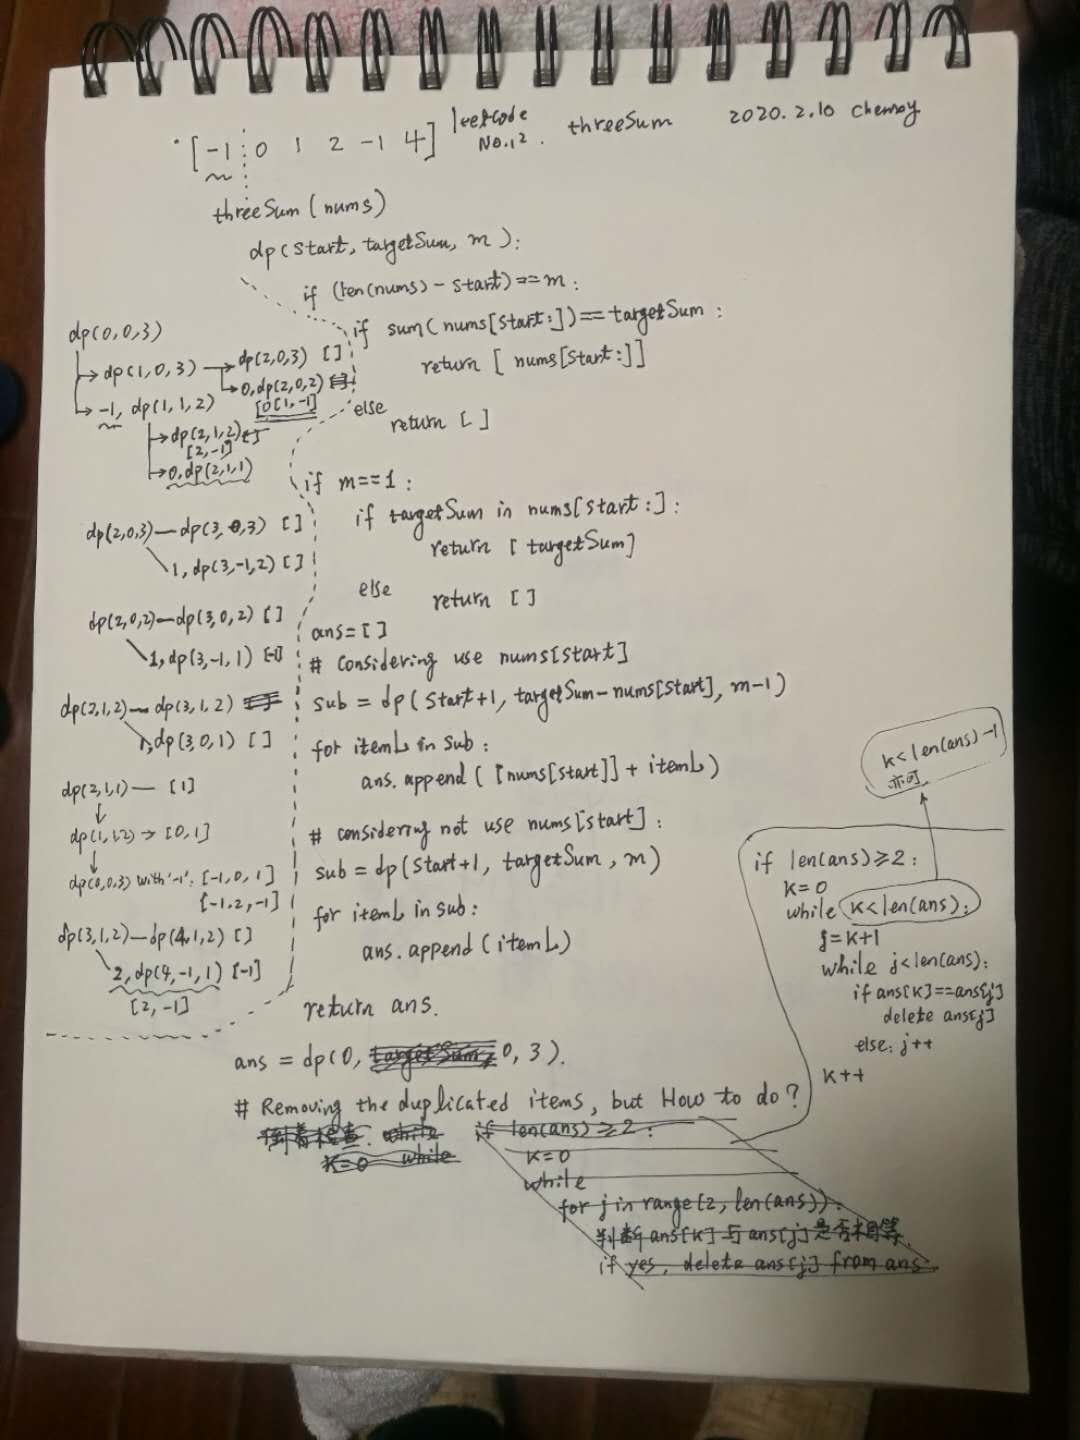 [-1 0 1 2 -1 4] leetcode No.12. threeSum 2020.2.10
threeSum(nums)
dp(start, targetSum, m):
if (len(nums) - start) == m:
if sum(nums[start:]) == targetSum:
return [nums[start:]]
else
return []
if m==1:
if targetSum in nums[start:]:
return [targetSum]
else
return []
ans=[]
# Considering use nums[start]
sub = dp(start+1, targetSum-nums[start], m-1)
for itemL in sub:
ans.append([nums[start]] + itemL)
# considering not use nums[start]:
sub = dp(start+1, targetSum, m)
for itemL in sub:
ans.append(itemL)
return ans.
ans = dp(0, targetSum, 0, 3).
# Removing the duplicated items, but How to do?
倒着检查. while if len(ans)≥2:
K=0 while K=0
while
for j in range(2, len(ans)):
判断ans[K]与ans[j]是否相等.
if yes, delete ans[j] from ans
dp(0,0,3)
→dp(1,0,3)→dp(2,0,3) []
0,dp(2,0,2)
-1, dp(1,1,2) [0[1,-1]
→dp(2,1,2)
[2,-1]
→0,dp(2,1,1)
dp(2,0,3)—dp(3,0,3) []
1,dp(3,-1,2) []
dp(2,0,2)—dp(3,0,2) []
1,dp(3,-1,1) [-1]
dp(2,1,2)—dp(3,1,2)
1,dp(3,0,1) []
dp(2,1,1)— [1]
↓
dp(1,1,2)→[0,1]
↓
dp(0,0,3) with '-1': [-1,0,1]
[-1,2,-1]
dp(3,1,2)—dp(4,1,2) []
2,dp(4,-1,1) [-1]
[2,-1]
k<len(ans)-1
亦可
if len(ans)≥2:
K=0
while K<len(ans):
j=K+1
while j<len(ans):
if ans[K]==ans[j]
delete ans[j]
else: j++
K++